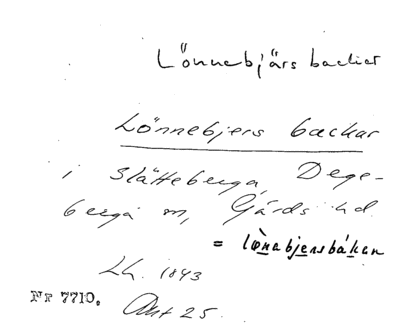 Lönnebjärs backar
Lönnebjers backar
i Slätteberga, Dege-
berga sn, Gärds hd.
= lò̱nabje̱rsbákan
Lh. 1843
Nr 7710. Akt 25.